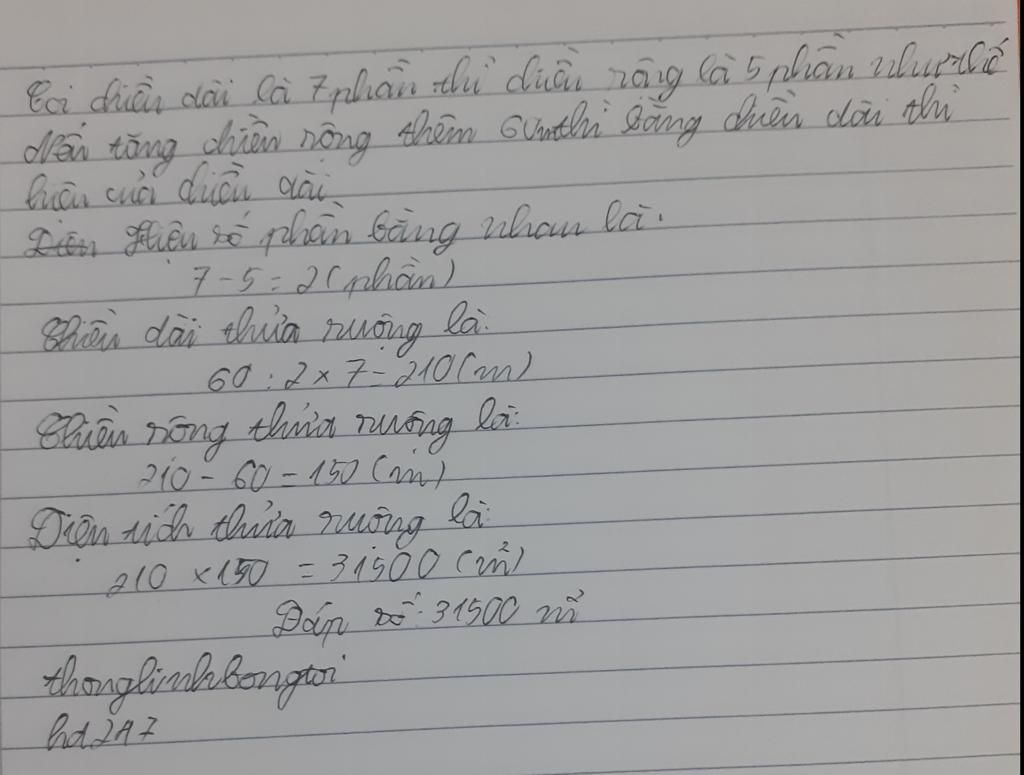 Coi chiều dài là 7 phần thì chiều rộng là 5 phần như thế
Nếu tăng chiều rộng thêm 60m thì bằng chiều dài thì
hiệu của chiều dài
Diện Hiệu số phần bằng nhau là:
7 - 5 = 2 (phần)
Chiều dài thửa ruộng là:
60 : 2 x 7 = 210 (m)
Chiều rộng thửa ruộng là:
210 - 60 = 150 (m)
Diện tích thửa ruộng là:
210 x 150 = 31500 (m²)
Đáp số: 31500 m²
thonglinhbongtoi
hd247